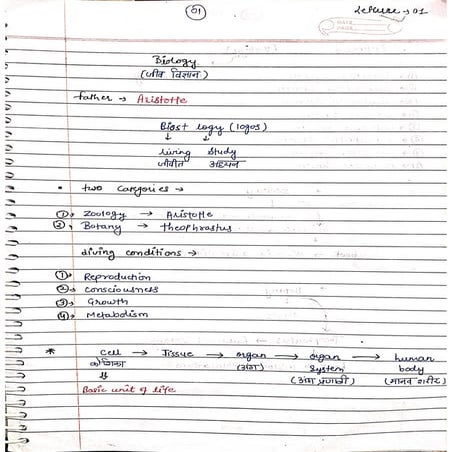 01
Lecture → 01
DATE
PAGE
Biology
(जीव विज्ञान)
father → Aristotle
Bios+ logy (logos)
↓ ↓
Living Study
जीवीत अध्ययन
• two categories →
① → Zoology → Aristotle
② → Botany → theophrastus
Living conditions →
① → Reproduction
② → Consciousness
③ → Growth
④ → Metabolism
* Cell → Tissue → organ → organ system → human body
कोशिका (अंग) (अंग प्रणाली) (मानव शरीर)
⇓
Basic unit of life